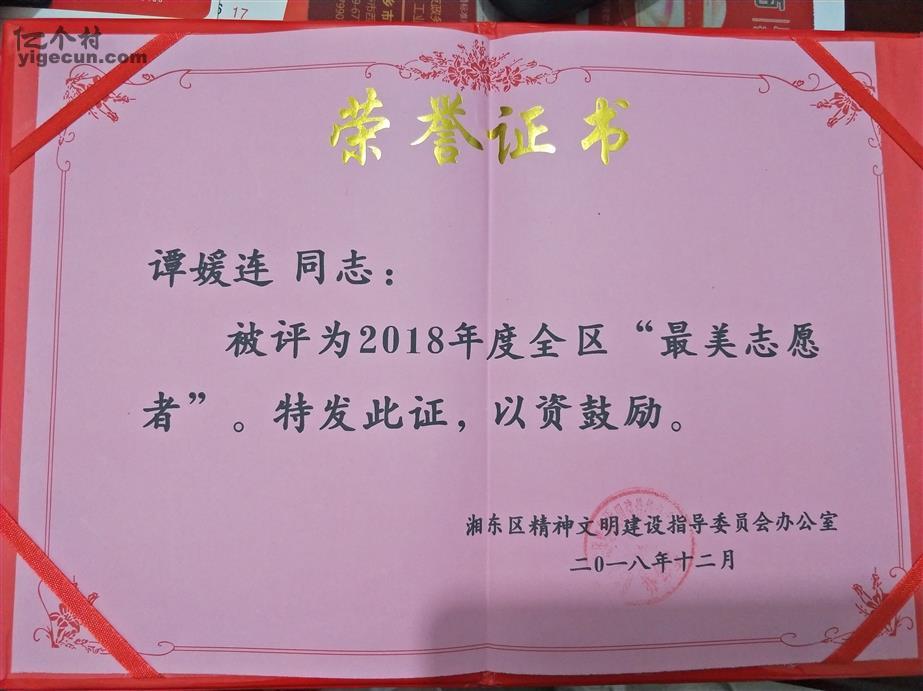 亿个村
yigecun.com
17
荣誉证书
谭媛连 同志：
被评为2018年度全区“最美志愿
者”。特发此证，以资鼓励。
湘东区精神文明建设指导委员会办公室
二〇一八年十二月